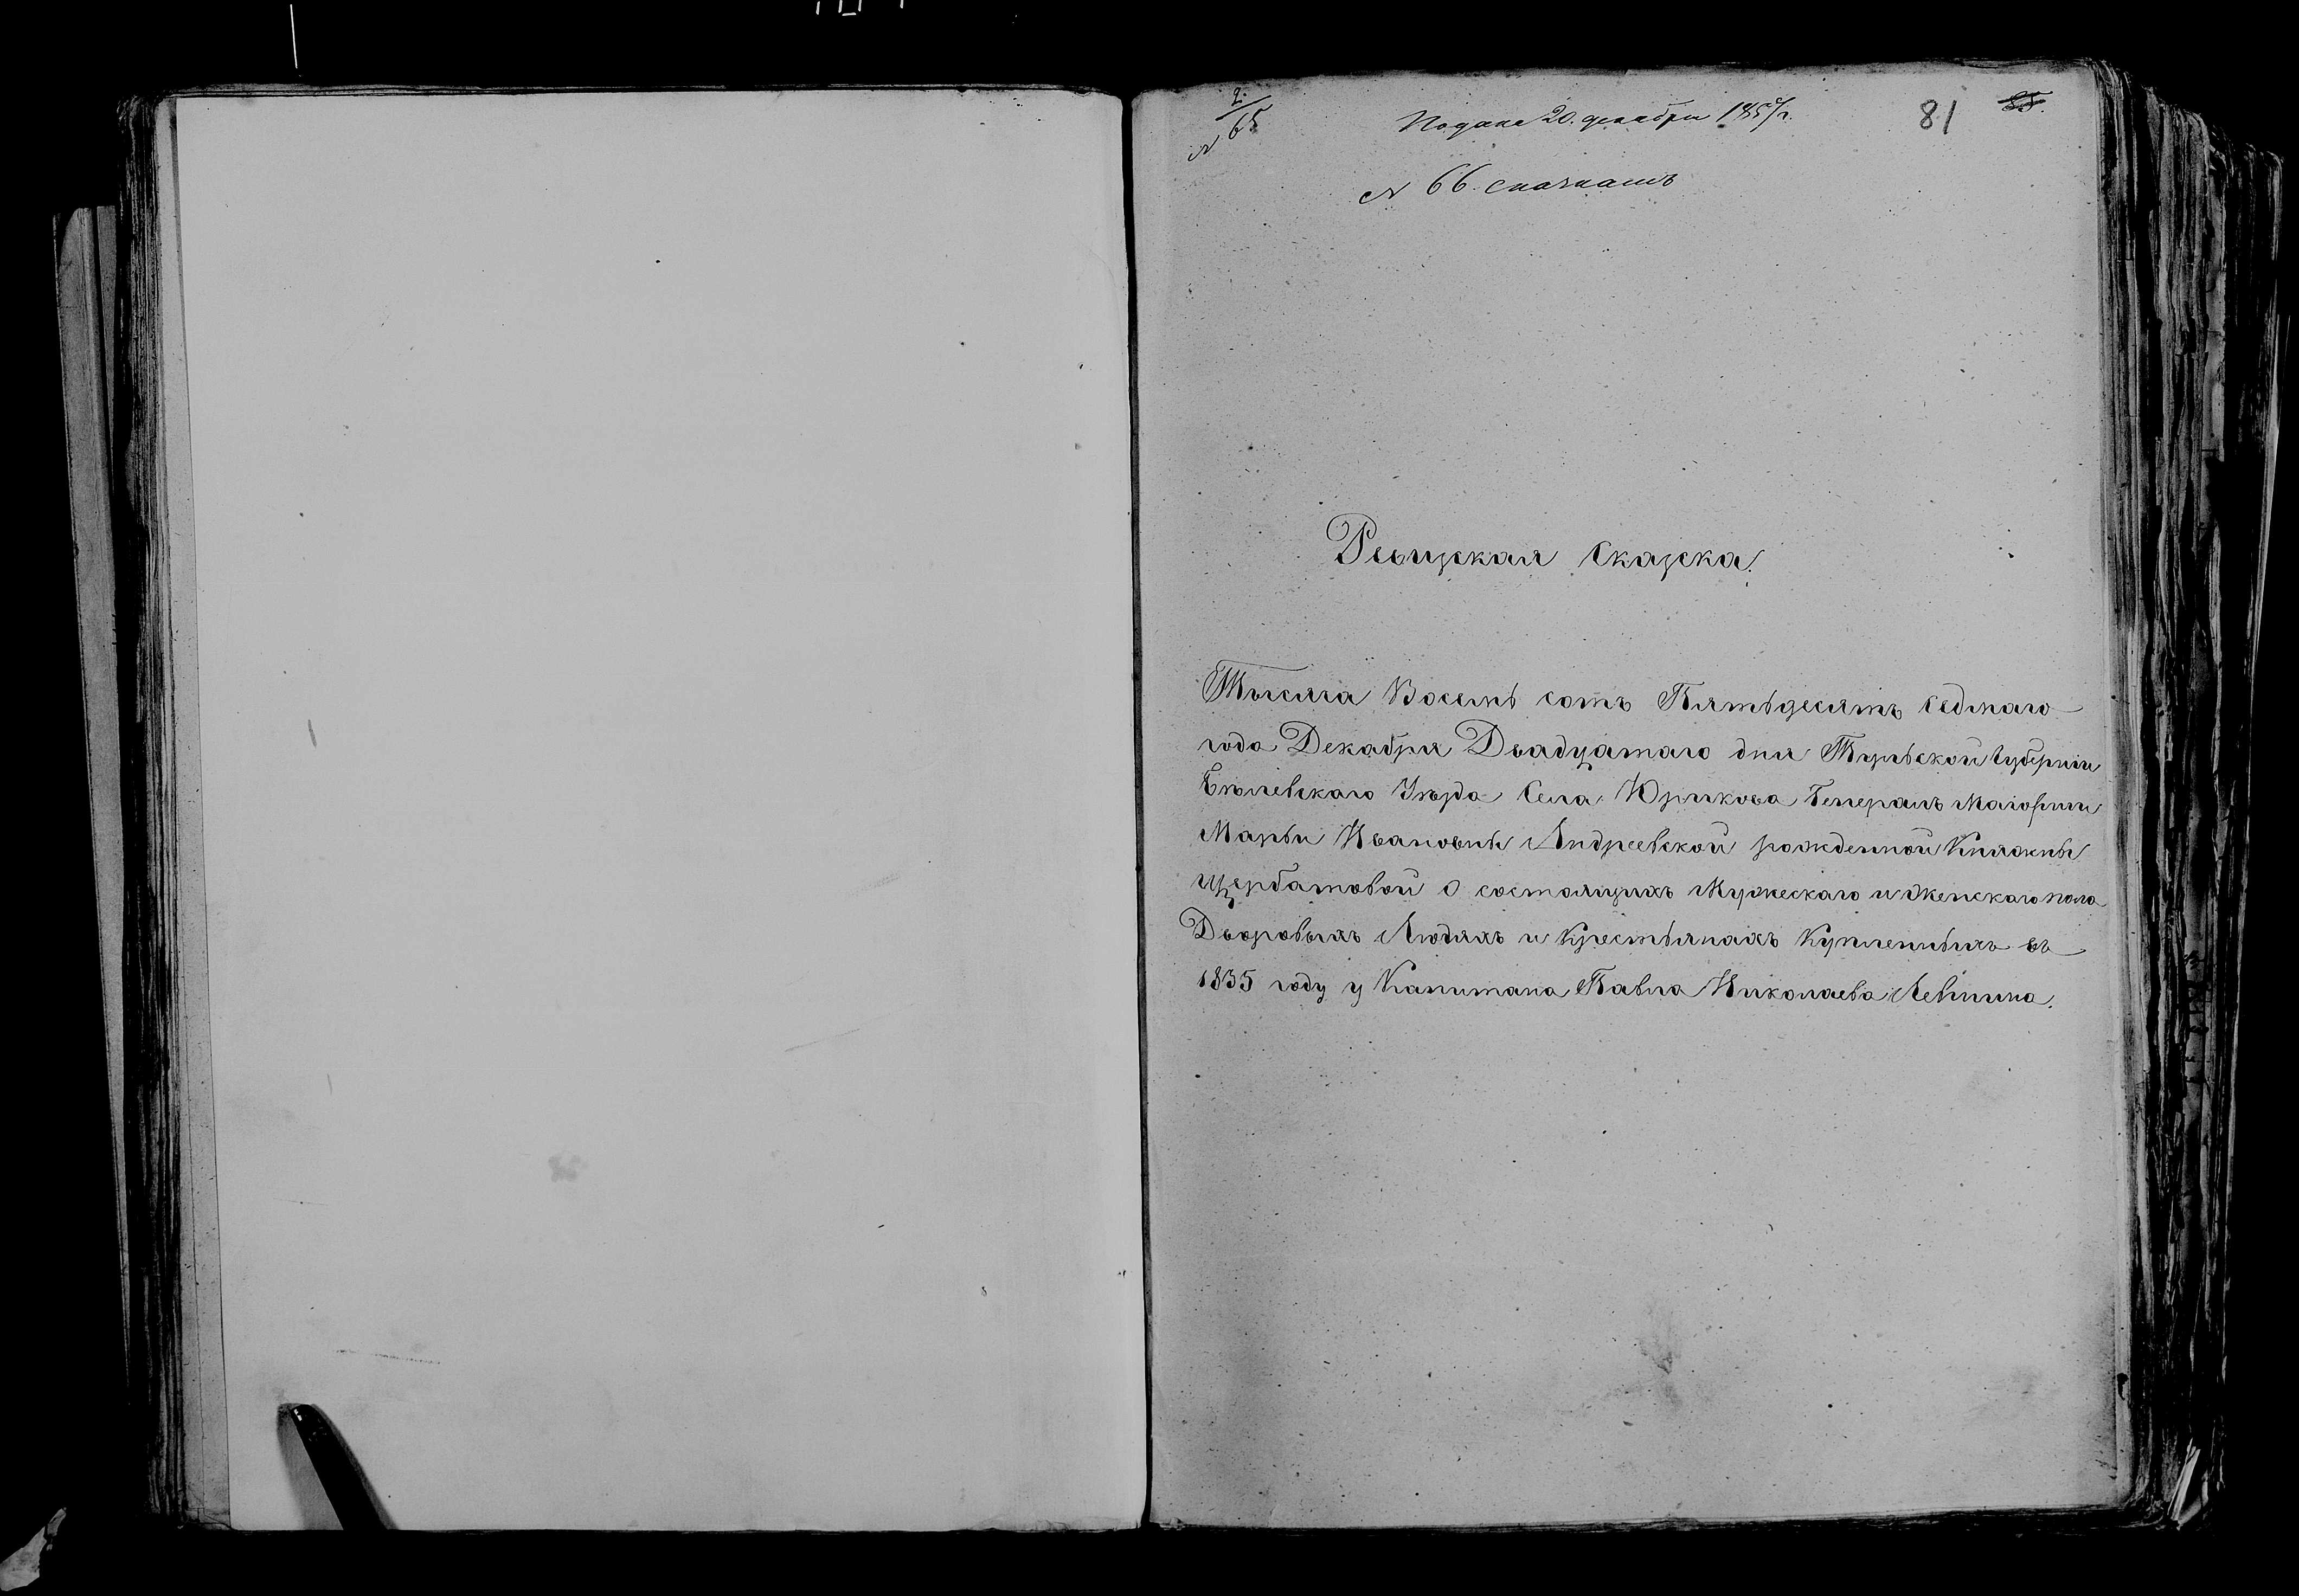 2.
N 65
Подана 20. декабря 1857 г.
81
85.
N 66.
Ревизская Сказка.
Тысяча Восемь сотъ Пятьдесятъ Седмаго
года Декабря Двадцатаго дня Тульской Губерніи
Бѣлевскаго Уѣзда Села Юрикова Генералъ Маіорши
Марьи Ивановны Андреевской рожденной Княжны
Щербатовой о состоящихъ Мужескаго и Женскаго пола
Дворовыхъ Людяхъ и Крестьянахъ Купленныхъ въ
1835 году у Капитана Павла Николаева Левшина.